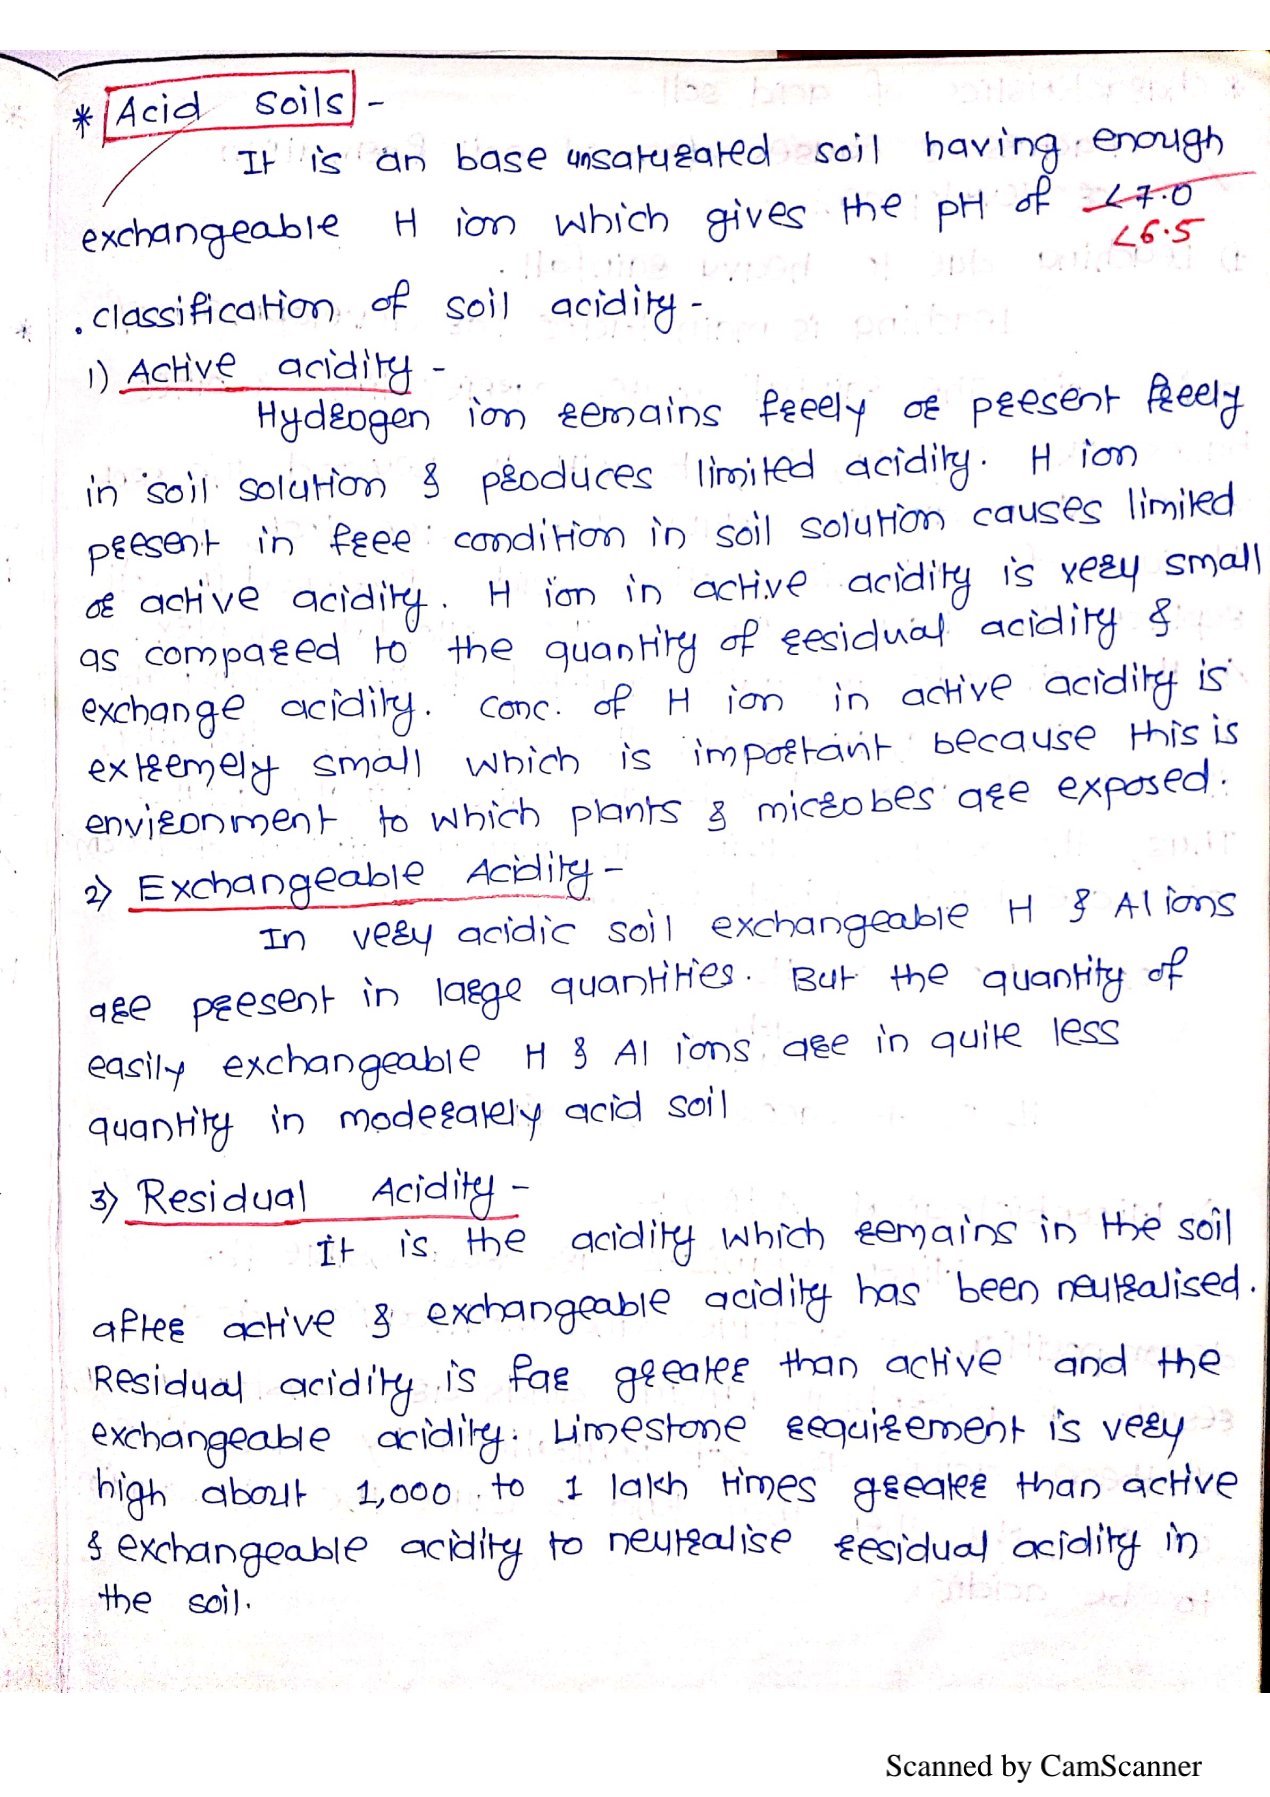 * Acid soils -
It is an base unsaturated soil having enough
exchangeable H ion which gives the pH of <7.0
<6.5
. classification of soil acidity -
1) Active acidity -
Hydrogen ion remains freely or present freely
in soil solution & produces limited acidity. H ion
present in free condition in soil solution causes limited
or active acidity. H ion in active acidity is very small
as compared to the quantity of residual acidity &
exchange acidity. conc. of H ion in active acidity is
extremely small which is important because this is
environment to which plants & microbes are exposed.
2) Exchangeable Acidity -
In very acidic soil exchangeable H & Al ions
are present in large quantities. But the quantity of
easily exchangeable H & Al ions are in quite less
quantity in moderately acid soil
3) Residual Acidity -
It is the acidity which remains in the soil
after active & exchangeable acidity has been neutralised.
Residual acidity is far greater than active and the
exchangeable acidity. Limestone requirement is very
high about 1,000 to 1 lakh times greater than active
& exchangeable acidity to neutralise residual acidity in
the soil.
Scanned by CamScanner